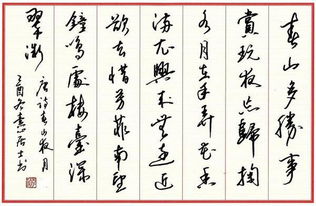 春山多勝事
賞玩夜忘歸掬
水月在手弄花香
滿衣興來無遠近
欲去惜芳菲南望
鐘鳴處樓臺深
翠微
唐詩春山夜月
酉冬 居士书